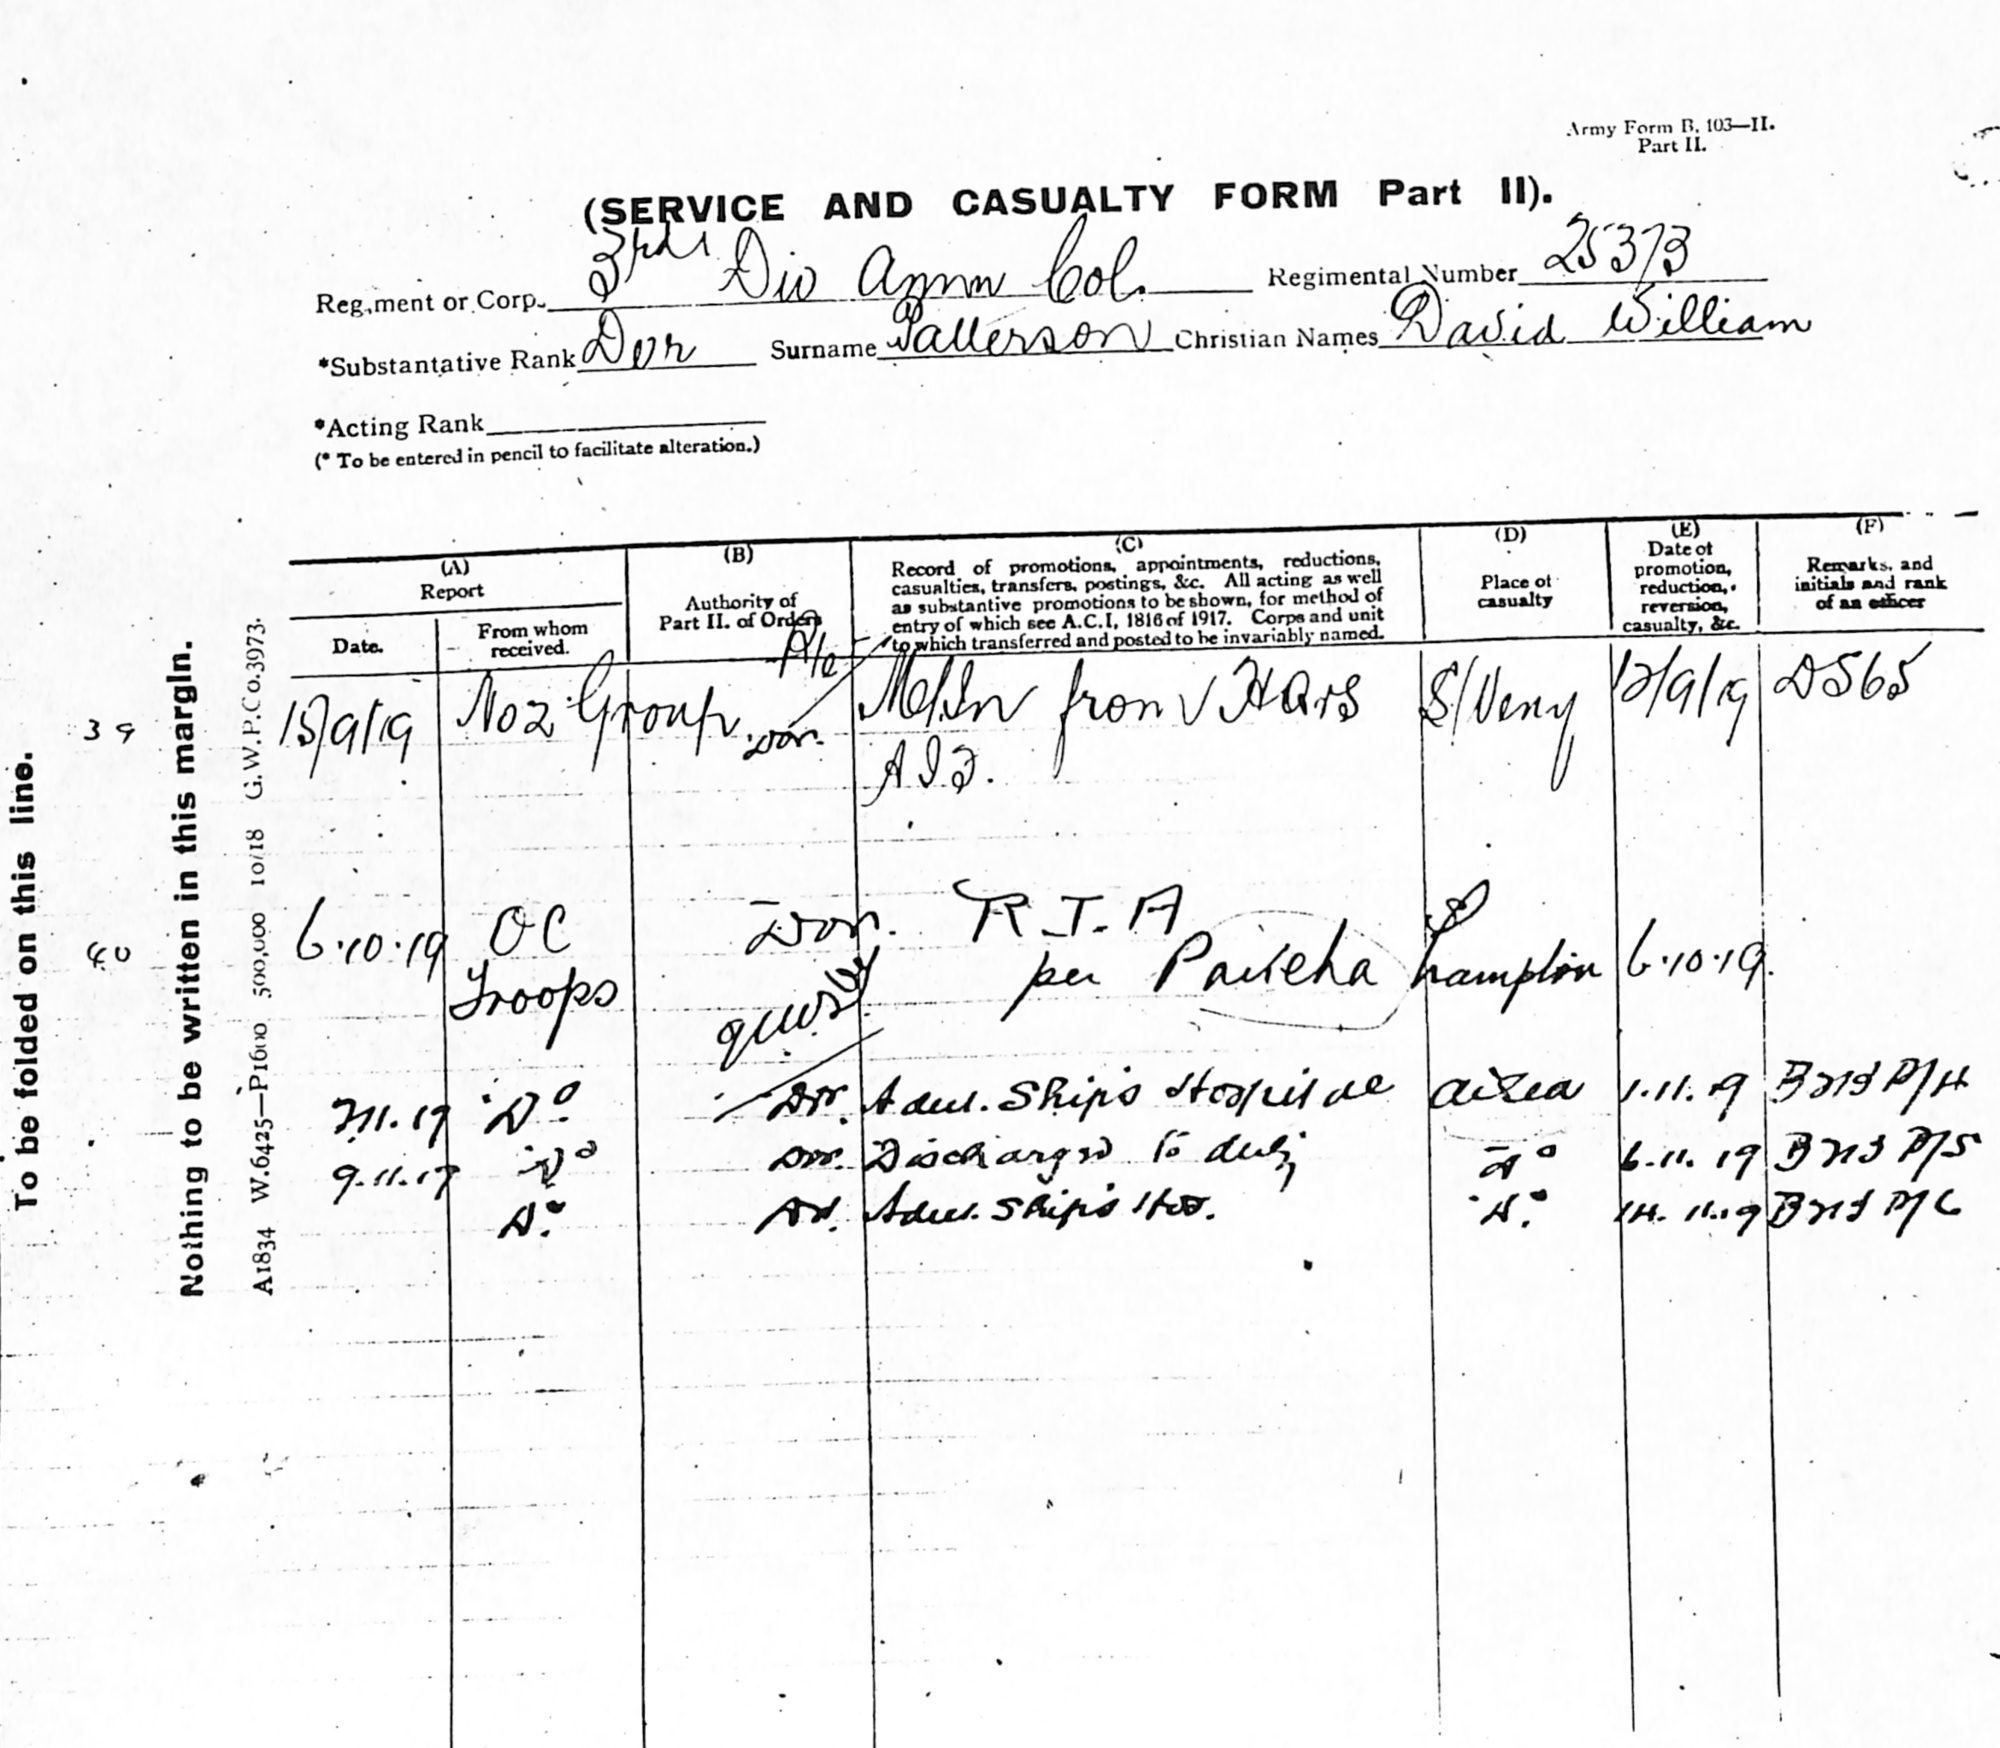 Army Form B. 103—II.
Part II.
(SERVICE AND CASUALTY FORM Part II).
Regiment or Corp. 3rd Div Ammn Col. Regimental Number 25373
*Substantative Rank Dvr Surname Patterson Christian Names David William
*Acting Rank
(* To be entered in pencil to facilitate alteration.)
(A) Report
Date.
From whom received.
(B)
Authority of Part II. of Orders
(C)
Record of promotions, appointments, reductions,
casualties, transfers, postings, &c. All acting as well
as substantive promotions to be shown, for method of
entry of which see A.C.I, 1816 of 1917. Corps and unit
to which transferred and posted to be invariably named.
(D)
Place of casualty
(E)
Date of promotion, reduction, reversion, casualty, &c.
(F)
Remarks, and initials and rank of an officer
39
/9/19 No 2 Group Dvr. M/In from Hqrs S/Veny /9/19
A.I.F.
40
6.10.19 OC Dvr. R.T.A
Troops per Pakeha hampton 6.10.19.
Do Dvr. Adm. Ship's Hospital at Sea 1.11.19
9.11.19 Do Dvr. Discharged to duty do 6.11.19
Do Dvr. Adm. Ship's Hos. do 14.11.19
To be folded on this line.
Nothing to be written in this margin.
A1834 W.6425—P1600 500,000 10/18 G.W.P.Co.3973.